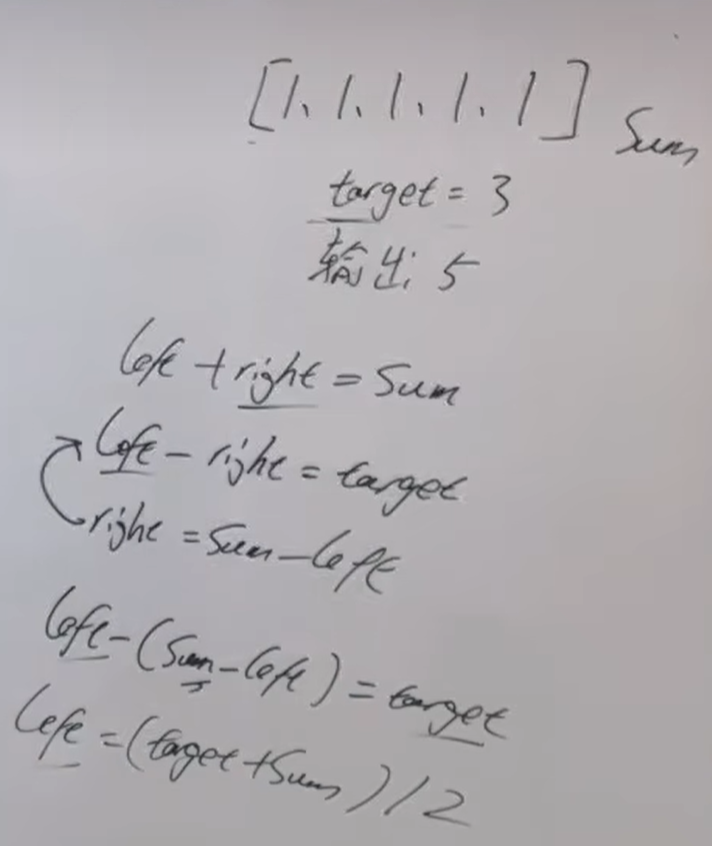 [1, 1, 1, 1, 1] Sum
target = 3
输出: 5
left + right = Sum
left - right = target
right = Sum - left
left - (Sum - left) = target
left = (taget + Sum) / 2